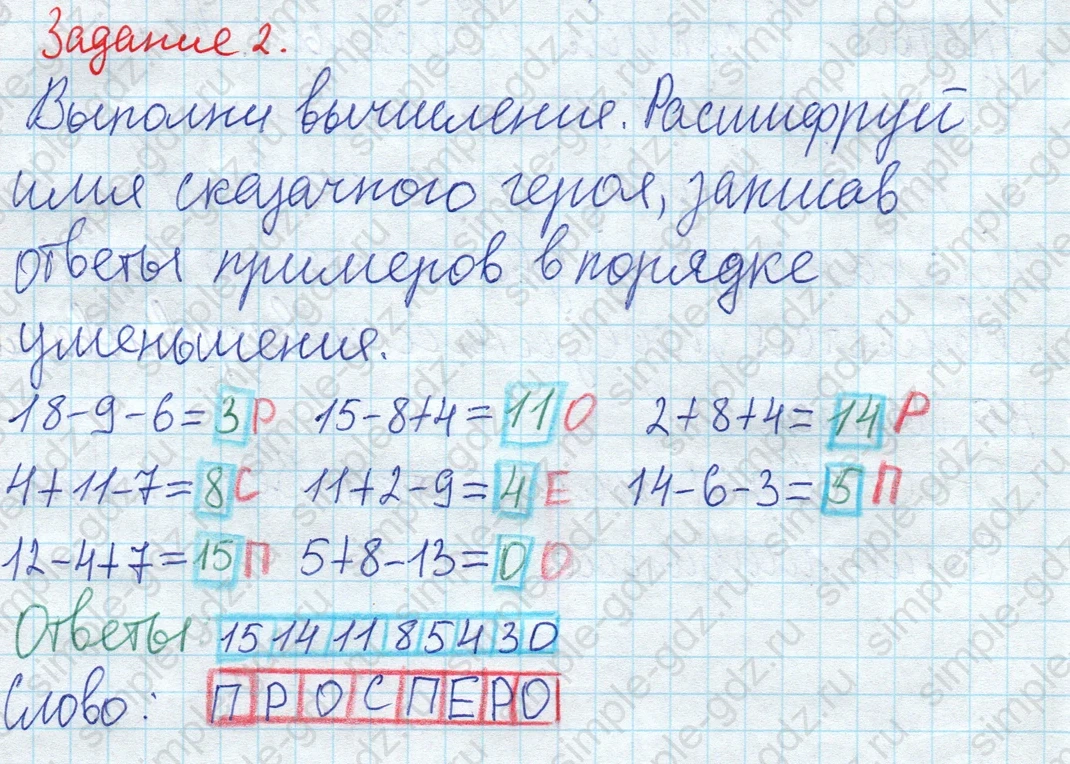 Задание 2.
Выполни вычисления. Расшифруй
имя сказочного героя, записав
ответы примеров в порядке
уменьшения.
18-9-6=3 Р 15-8+4=11 О 2+8+4=14 Р
4+11-7=8 С 11+2-9=4 Е 14-6-3=5 П
12-4+7=15 П 5+8-13=0 О
Ответы 15 14 11 8 5 4 3 0
Слово: П Р О С П Е Р О
simple-gdz.ru